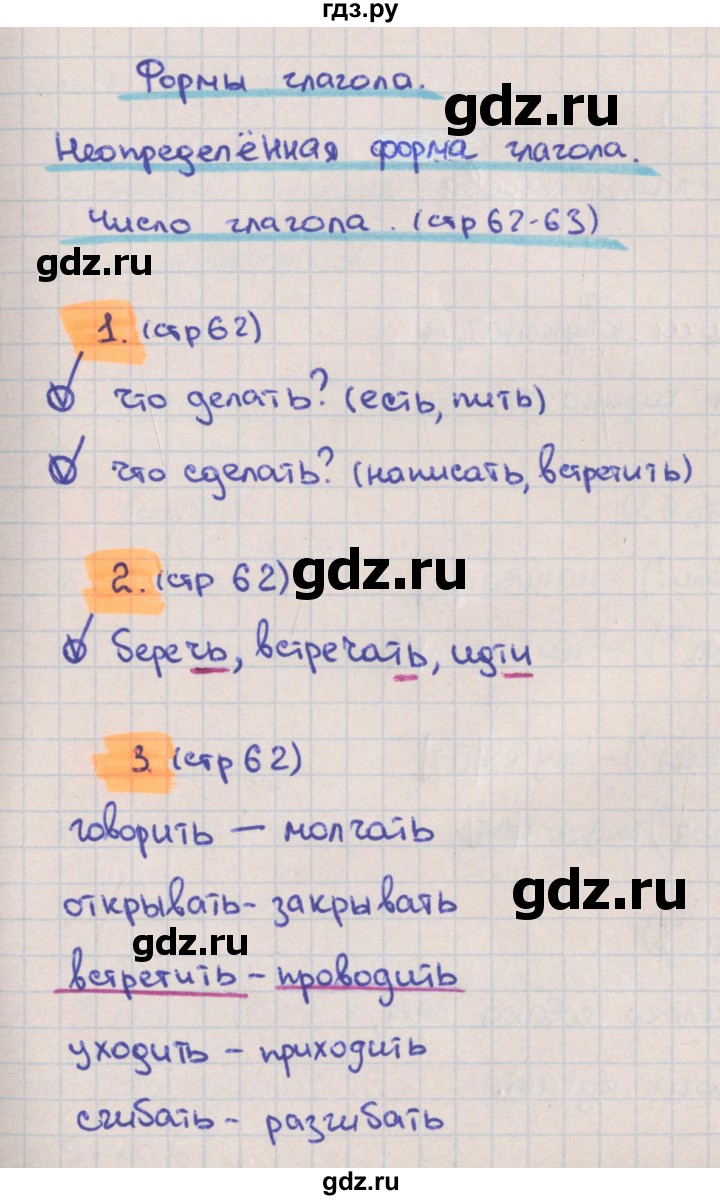 гдз.ру
Формы глагола.
gdz.ru
Неопределённая форма глагола.
Число глагола. (стр 62-63)
gdz.ru
1. (стр 62)
что делать? (есть, пить)
что сделать? (написать, встретить)
2. (стр 62)
gdz.ru
беречь, встречать, идти
3. (стр 62)
говорить – молчать
открывать - закрывать
gdz.ru
gdz.ru
встретить - проводить
уходить - приходить
сгибать - разгибать
gdz.ru